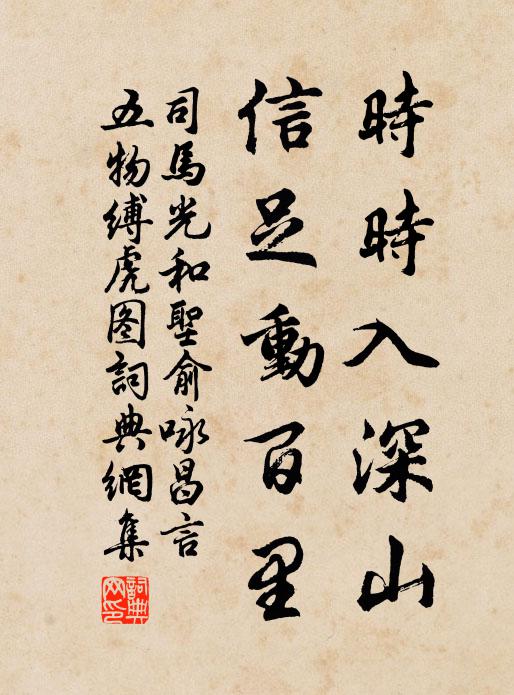 時時入深山
信足動百里
司馬光和聖俞咏昌言
五物縛虎图詞典網集
詞典
网印